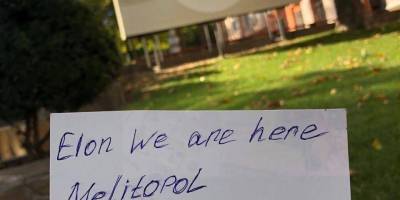 Elon we are here
MelitopoL